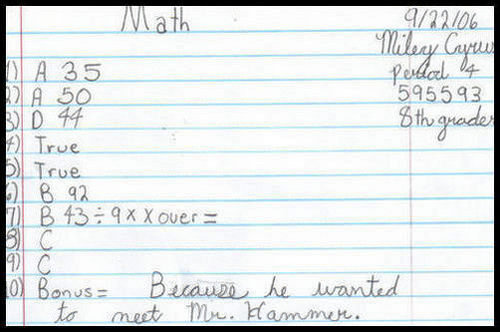 Math 9/22/06
Miley Cyrus
period 4
1) A 35
595593
2) A 50
8th grader
3) D 44
4) True
5) True
6) B 92
7) B 43 ÷ 9 x x over =
8) C
9) C
10) Bonus = Because he wanted
to meet Mr. Hammer.